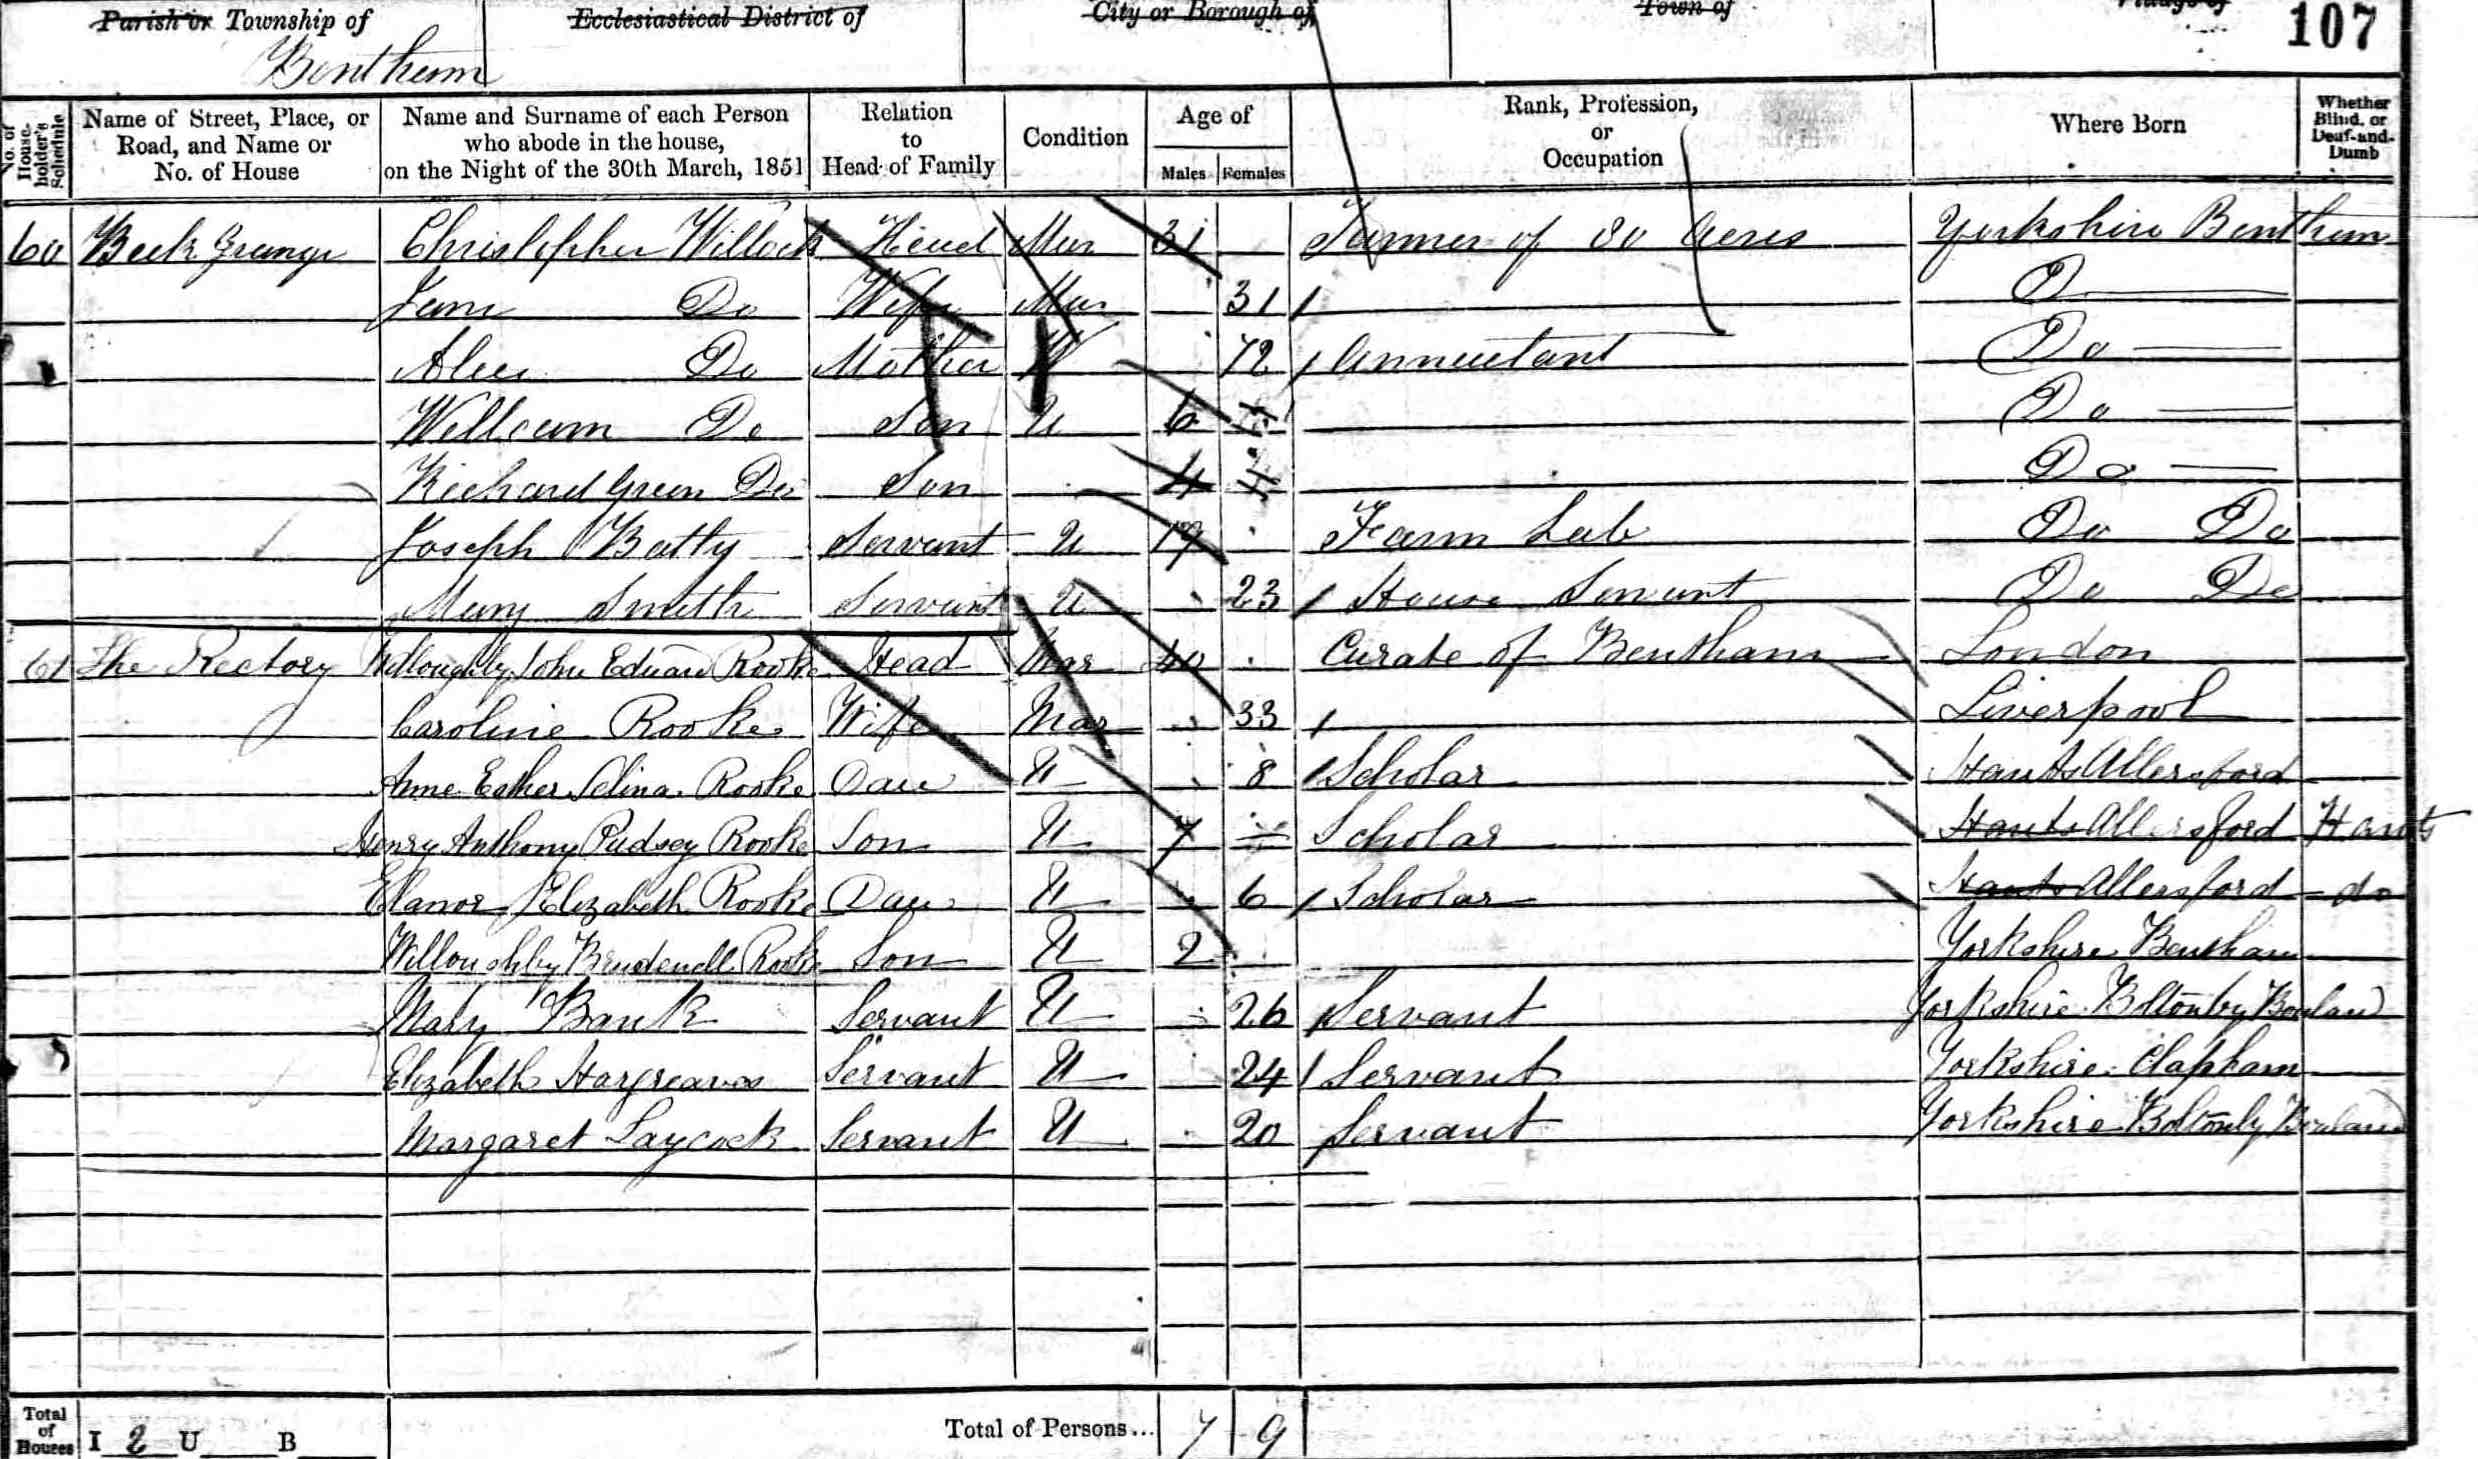 Parish or Township of Ecclesiastical District of City or Borough of Town of Village of 107
Bentham
No. of House-holder's Schedule Name of Street, Place, or Road, and Name or No. of House Name and Surname of each Person who abode in the house, on the Night of the 30th March, 1851 Relation to Head of Family Condition Age of Males Females Rank, Profession, or Occupation Where Born Whether Blind, or Deaf-and-Dumb
60 Beck Grange Christopher Willock Head Mar 31 Farmer of 80 Acres Yorkshire Bentham
Jane Do Wife Mar 31 Do
Alice Do Mother W 72 Annuitant Do
William Do Son U 6 Do
Richard Green Do Son 4 Do
Joseph Batty Servant U 19 Farm Lab Do Do
Mary Smith Servant U 23 House Servant Do Do
61 The Rectory Willoughby John Edward Rooke Head Mar 40 Curate of Bentham London
Caroline Rooke Wife Mar 33 Liverpool
Anne Esther Selina Rooke Dau U 8 Scholar Hants Allersford
Henry Anthony Pudsey Rooke Son U 7 Scholar Hants Allersford Hants
Elanor Elizabeth Rooke Dau U 6 Scholar Hants Allersford do
Willoughby Brudenell Rooke Son U 2 Yorkshire Bentham
Mary Bank Servant U 26 Servant Yorkshire Bolton by Bowland
Elizabeth Hargreaves Servant U 24 Servant Yorkshire Clapham
Margaret Laycock Servant U 20 Servant Yorkshire Bolton by Bowland
Total of Houses I 2 U B Total of Persons... 7 9